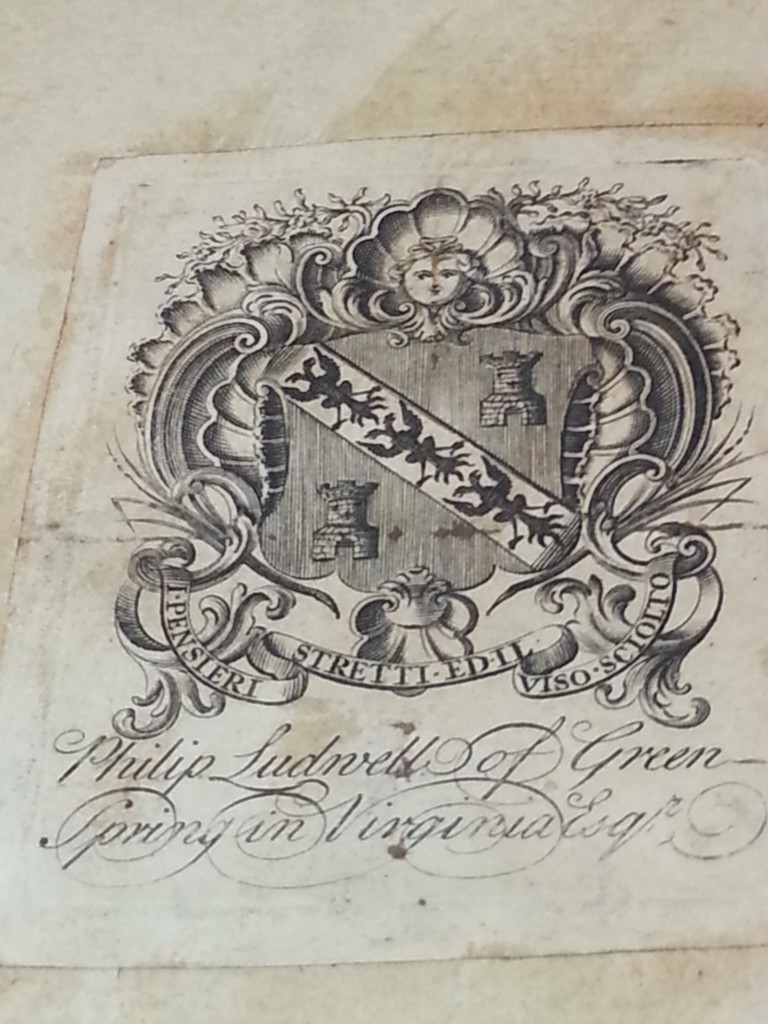 I·PENSIERI STRETTI·ED·IL· VISO·SCIOLTO
Philip Ludwell of Green-
Spring in Virginia Esqr.